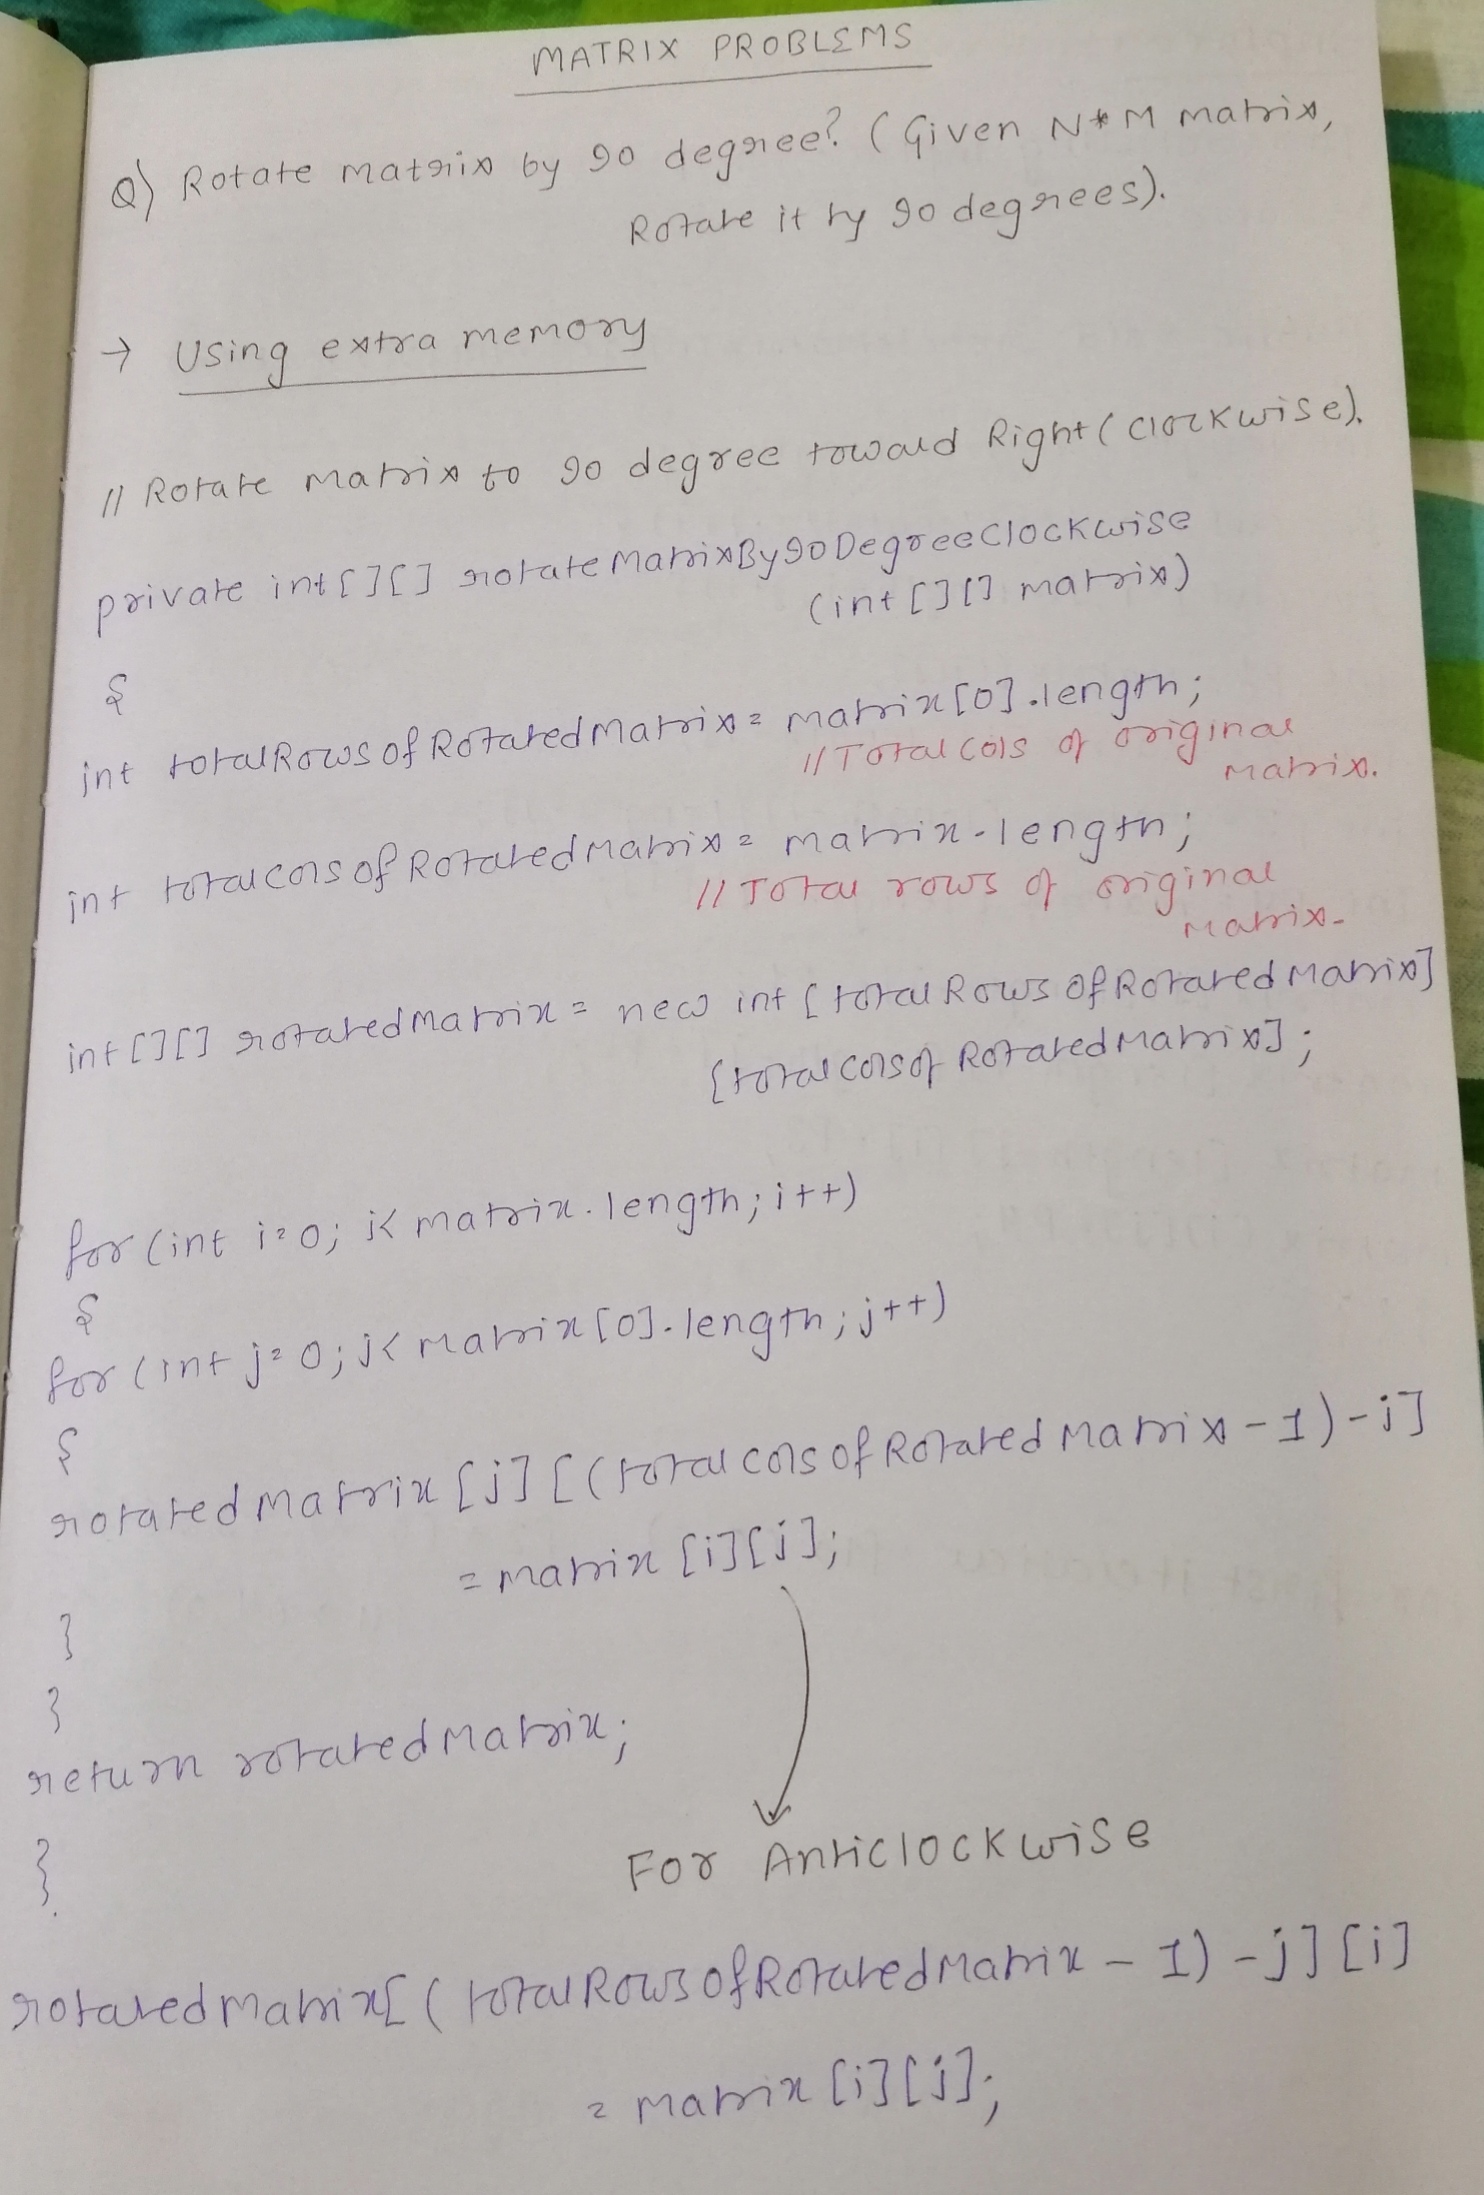 MATRIX PROBLEMS
Q) Rotate matrix by 90 degree? (Given N*M matrix,
Rotate it by 90 degrees).
→ Using extra memory
// Rotate matrix to 90 degree toward Right (clockwise).
private int[][] rotateMatrixBy90DegreeClockwise
(int[][] matrix)
{
int totalRowsOfRotatedMatrix = matrix[0].length;
//Total cols of original
matrix.
int totalColsOfRotatedMatrix = matrix.length;
// Total rows of original
matrix.
int[][] rotatedMatrix = new int [totalRowsOfRotatedMatrix]
[totalColsOfRotatedMatrix];
for (int i=0; i< matrix.length; i++)
{
for (int j=0; j< matrix[0].length; j++)
{
rotatedMatrix [j] [(totalColsOfRotatedMatrix - 1) - i]
= matrix [i][j];
}
}
return rotatedMatrix;
}
For Anticlockwise
rotatedMatrix[(totalRowsOfRotatedMatrix - 1) - j] [i]
= matrix [i][j];